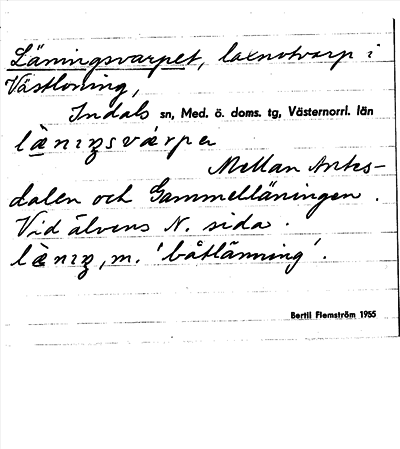 Läningsvarpet, laxnotvarp i
Västloning,
Indals sn, Med. ö. doms. tg, Västernorrl. län
Mellan Anks-
dalen och Gammelläningen.
Vid älvens N. sida.
m. 'båtlänning'.
Bertil Flemström 1955